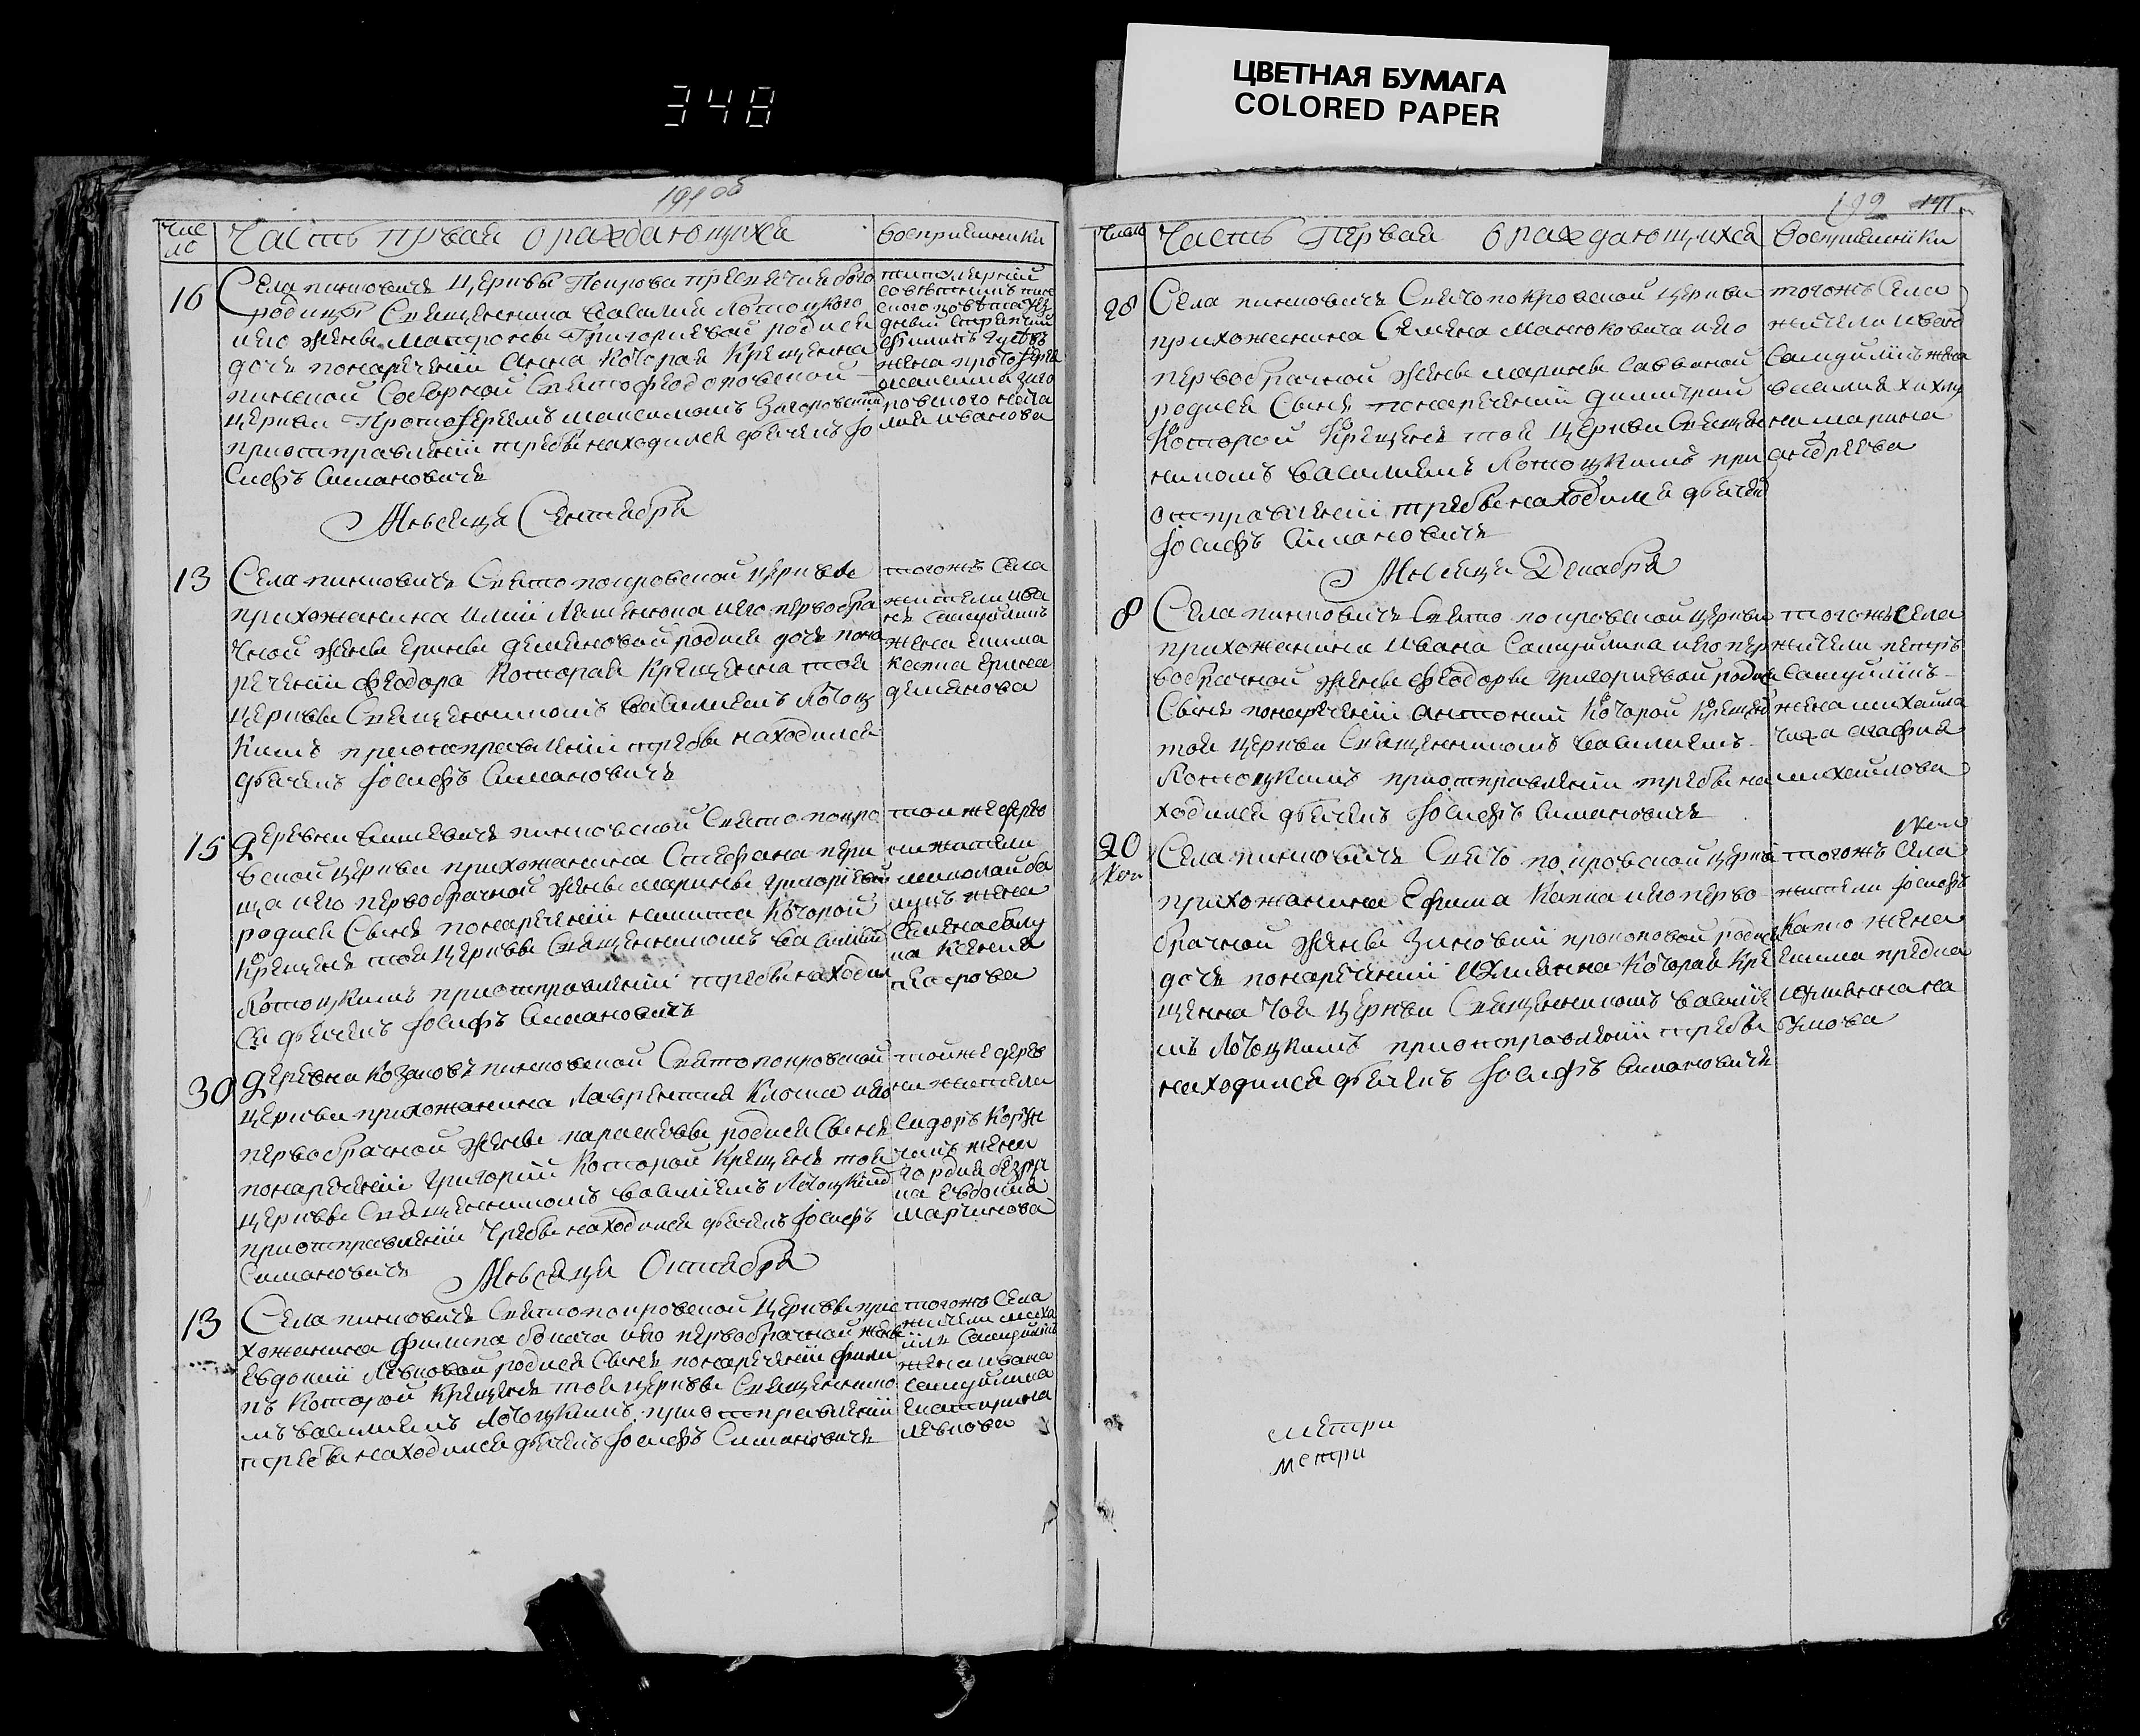 348
ЦВЕТНАЯ БУМАГА
COLORED PAPER
191 об
Чис
ло
Часть првая о раждающихся
восприемники
16
Села пинковичъ Церквы Покрова пресвечия бого
родицы Священника Василия Лотоцкого
иего жены Матроны Григориевой родися
дочь понаречении Анна Которая Крещенна
пинской Соборной Святофеодоровской
церкви Протоиереемъ Максимомъ Загоровским
приотправлении требы находился дьячекъ Ио
Сифъ Симановичъ
титолярний
совветникъ пин
ского повета
жена протоиерея
Мъсяца Сентября
13
Села пинковичъ Святопокровской церквы
прихожанина Илии иего первобра
чной жены Ерины Демяновой родися дочь пона
речении Феодора Которая Крещенна тоя
церквы Священникомъ Василиемъ Лотоц
Кимъ приотправлении требы находился
дьячекъ Иосифъ Симановичъ
тогожъ Села
жители Ива
нъ Самуйликъ
жена Якима
Капла Ерина
демянова
15
Деревни Вишевичъ пинковской Святопокро
вской церкви прихожанина Стефана
ща иего первобрачной жены марины григориевой
родися Сынъ понаречении никита Которой
Крещенъ тоя церквы Священникомъ Василии
Лотоцкимъ приотправлении требы находил
ся дьячекъ Иосифъ Симановичъ
тои же дерев
ни жители
николай
жена
Семена
на Ксения
петрова
30
Деревни Козляковъ пинковской Святопокровской
церкви прихожанина Лаврентия Клоша иего
первобрачной жены парасковы родися Сынъ
понаречении григорий Которой Крещенъ тоя
церквы Священникомъ Василиемъ Лотоцким
приотправлении требы находился дьячекъ Иосифъ
Симановичъ
тойже дерев
ни жители
Сидоръ Корж
жена
гордия
на Евдокия
мартинова
Мъсяца Октября
13
Села пинковичъ Святопокровской Церквы при
хожанина Филипа иего первобрачной жены
Евдокии Левковой родися Сынъ понаречении Фили
пъ Которой Крещенъ тоя церквы Священнико
мъ Василиемъ Лотоцкимъ приотправлении
требы находился дьячекъ Иосифъ Симановичъ
тогожъ Села
жители миха
илъ Самуйликъ
жена Ивана
Самуйлика
Екатерина
левкова
192 141
Число
Часть Первая о раждающихся
Восприемники
28
Села пинковичъ Святопокровской церкви
прихожанина Семена Манюковича иего
первобрачной жены марины Саввиной
родися Сынъ понаречении димитрий
Которой Крещенъ тоя церкви Священ
никомъ Василиемъ Лотоцкимъ при
отправлении требы находился дьячек
Иосифъ Симановичъ
тогожъ Села
жители Иван
Самуйликъ жена
василия
ни марина
андреева
Мъсяца Декабря
8
Села пинковичъ Свято покровской церкви
прихожанина Ивана Самуйлика иего пер
вобрачной жены Феодоры григориевой родися
Сынъ понаречении Антоний Которой Крещен
тоя церкви Священникомъ Василиемъ
Лотоцкимъ приотправлении требы на
ходился дьячекъ Иосифъ Симановичъ
тогожъ Села
жители петръ
Самуйликъ
жена михаила
агафия
михайлова
20
Села пинковичъ Свято покровской церкви
прихожанина Ефима Капла иего перво
брачной жены Зиновии прокоповой родися
дочь понаречении Иулиянна Которая Кре
щенна тоя церкви Священникомъ Василие
мъ Лотоцкимъ приотправлении требы
находился дьячекъ Иосифъ Симановичъ
тогожъ Села
жители Иосифъ
Капло жена
Якима
Иулиянна
метри
метри